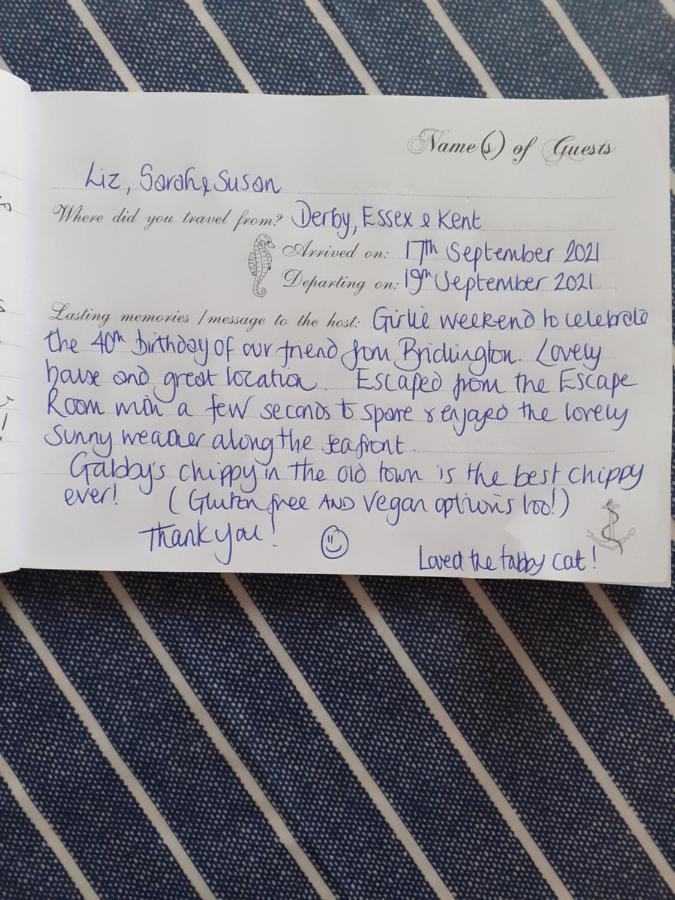 Name(s) of Guests
Liz, Sarah & Susan
Where did you travel from? Derby, Essex & Kent
Arrived on: 17th September 2021
Departing on: 19th September 2021
Lasting memories / message to the host: Girlie weekend to celebrate
the 40th birthday of our friend from Bridlington. Lovely
house and great location. Escaped from the Escape
Room with a few seconds to spare & enjoyed the lovely
sunny weather along the seafront.
Gabby's chippy in the old town is the best chippy
ever! (Gluten free AND Vegan options too!)
Thank you!
Loved the tabby cat!